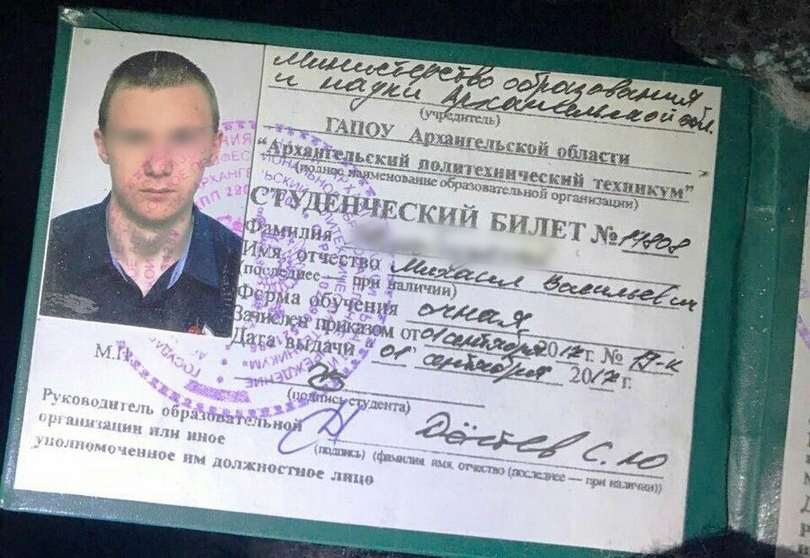 Министерство образования
и науки Архангельской обл.
(учредитель)
ГАПОУ Архангельской области
"Архангельский политехнический техникум"
(полное наименование образовательной организации)
СТУДЕНЧЕСКИЙ БИЛЕТ № 17808
Фамилия
Имя, отчество Михаил Васильевич
(последнее — при наличии)
Форма обучения очная
Зачислен приказом от 01 сентября 2017 г. № 19-к
Дата выдачи 01 сентября 2017 г.
М.П.
(подпись студента)
Руководитель образовательной
организации или иное
уполномоченное им должностное лицо
Дёттев С. Ю
(подпись) (фамилия, имя, отчество (последнее — при наличии))